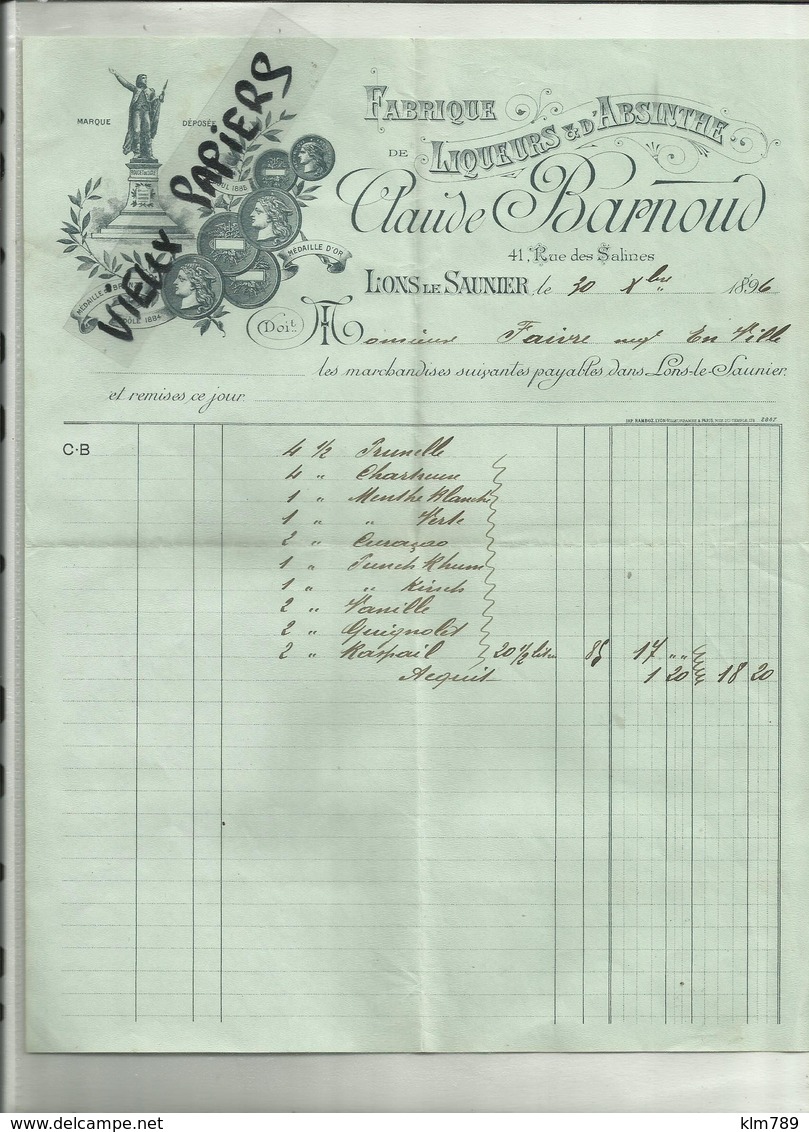 MARQUE DÉPOSÉE
VIEUX PAPIERS
ROUGET DE LISLE
1885
MÉDAILLE D'OR
MÉDAILLE
DÔLE 1884
FABRIQUE
DE LIQUEURS & D'ABSINTHE
Claude Barnoud
41, Rue des Salines
LONS LE SAUNIER le 20 Xbre 1896
Doit Monsieur Faivre negt En Ville
les marchandises suivantes payables dans Lons-le-Saunier
et remises ce jour
2987
C·B
4 1/2 Prunelle
4 " Chartreuse
1 " Menthe Blanche
1 " " Verte
2 " Curaçao
1 " Punch Rhum
1 " " Kirsch
2 " Vanille
2 " Guignolet
2 " Raspail 20 1/2 litres 85 17 " "
Acquit 1 20 18 20
delcampe.net
klm789